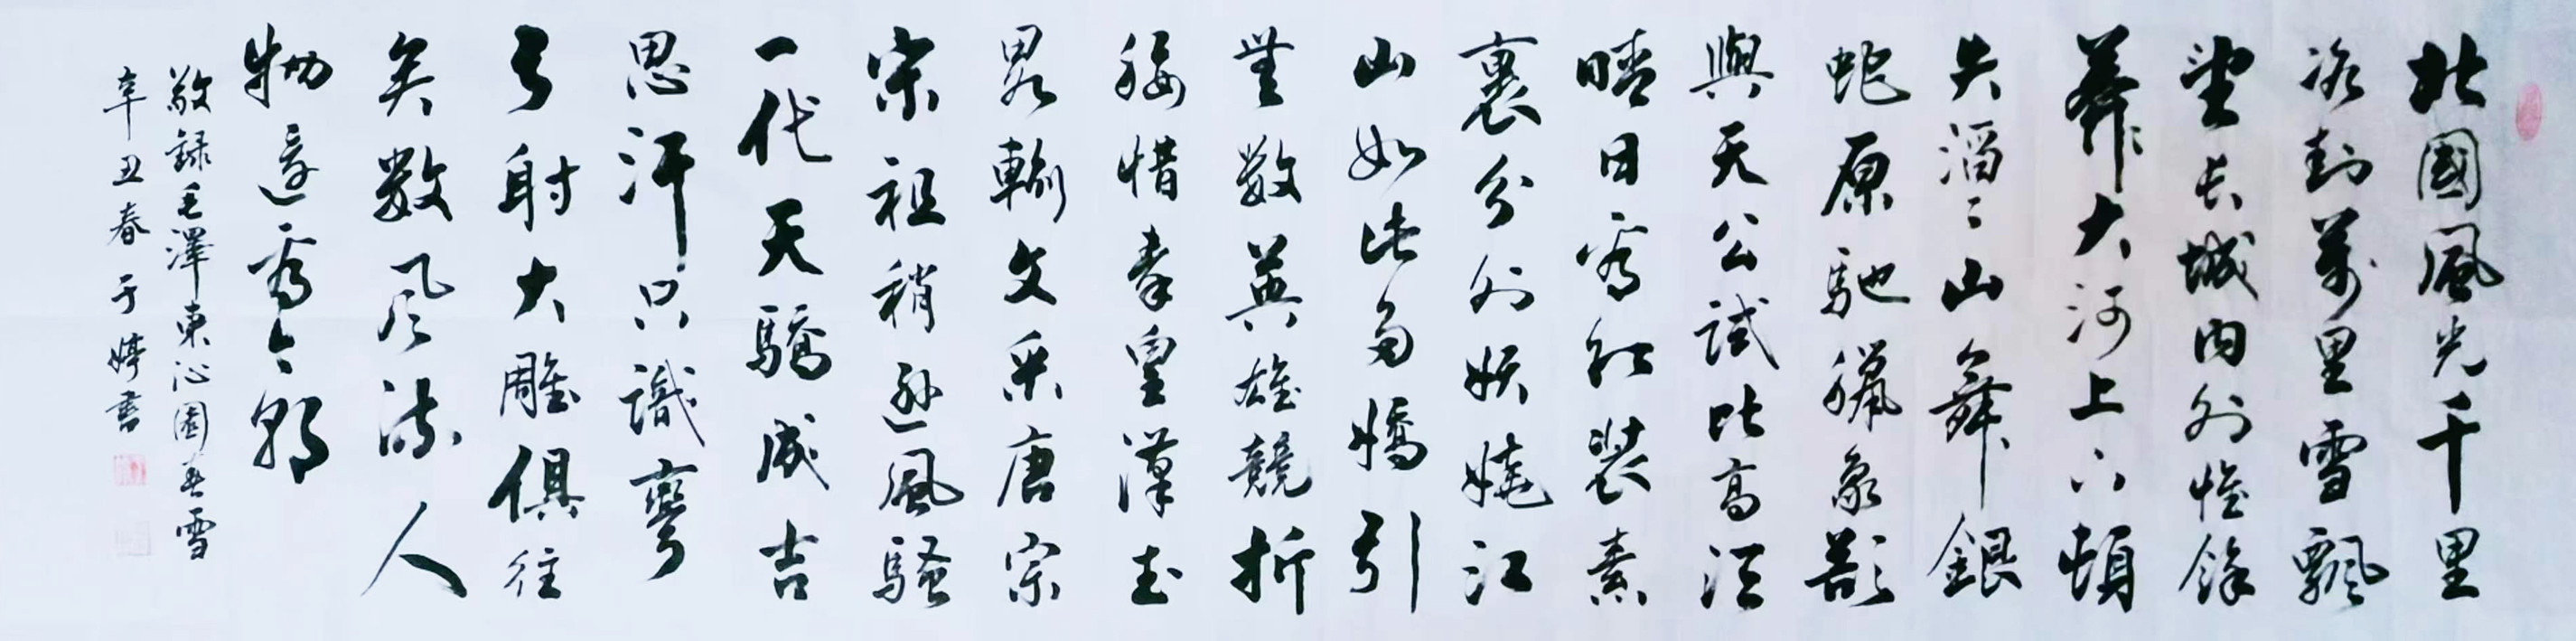 北國風光千里
冰封萬里雪飄
望長城内外惟餘
莽〻大河上下頓
失滔〻山舞銀
蛇原馳臘象欲
與天公試比高須
晴日看紅裝素
裹分外妖嬈江
山如此多嬌引
無數英雄競折
腰惜秦皇漢武
畧輸文采唐宗
宋祖稍遜風騷
一代天驕成吉
思汗只識彎
弓射大雕俱往
矣數風流人
物還看今朝
敬録毛澤東沁園春雪
辛丑春于婷書